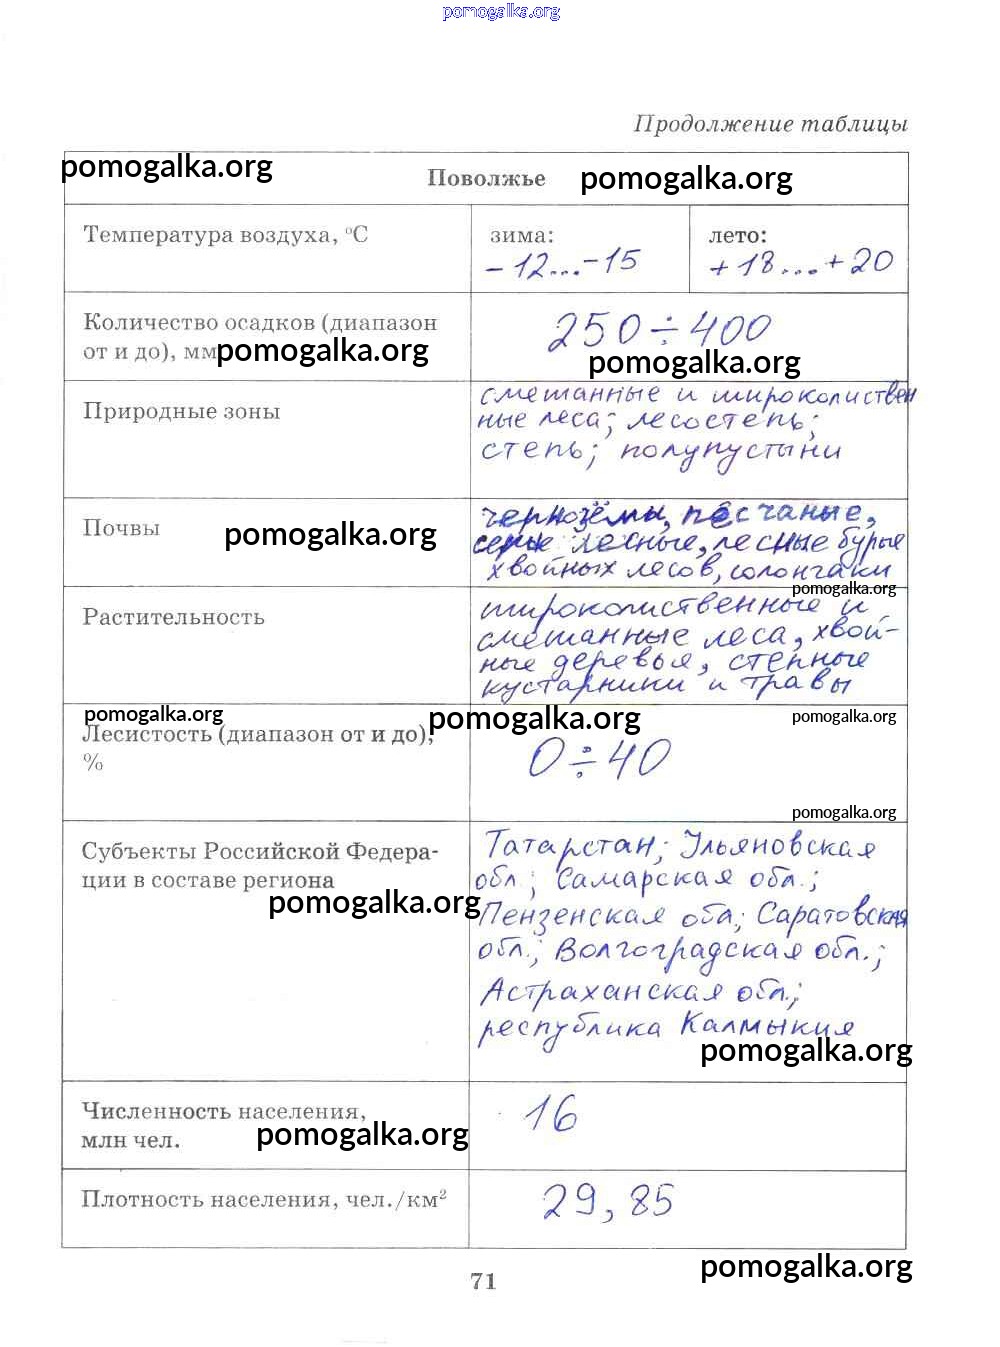 pomogalka.org
Продолжение таблицы
pomogalka.org
Поволжье
pomogalka.org
Температура воздуха, °С
зима:
-12...-15
лето:
+18....+20
Количество осадков (диапазон
от и до), мм
pomogalka.org
250÷400
pomogalka.org
Природные зоны
смешанные и широколиствен
ные леса; лесостепь;
степь; полупустыни
Почвы
pomogalka.org
чернозёмы, песчаные,
серые лесные, лесные бурые
хвойных лесов, солончаки
pomogalka.org
Растительность
широколиственные и
смешанные леса, хвой-
ные деревья, степные
кустарники и травы
pomogalka.org
pomogalka.org
pomogalka.org
Лесистость (диапазон от и до),
%
0÷40
pomogalka.org
Субъекты Российской Федера-
ции в составе региона
pomogalka.org
Татарстан; Ульяновская
обл.; Самарская обл.;
Пензенская обл; Саратовская
обл.; Волгоградская обл.;
Астраханская обл.;
республика Калмыкия
pomogalka.org
Численность населения,
млн чел.
pomogalka.org
16
Плотность населения, чел./км²
29,85
pomogalka.org
71